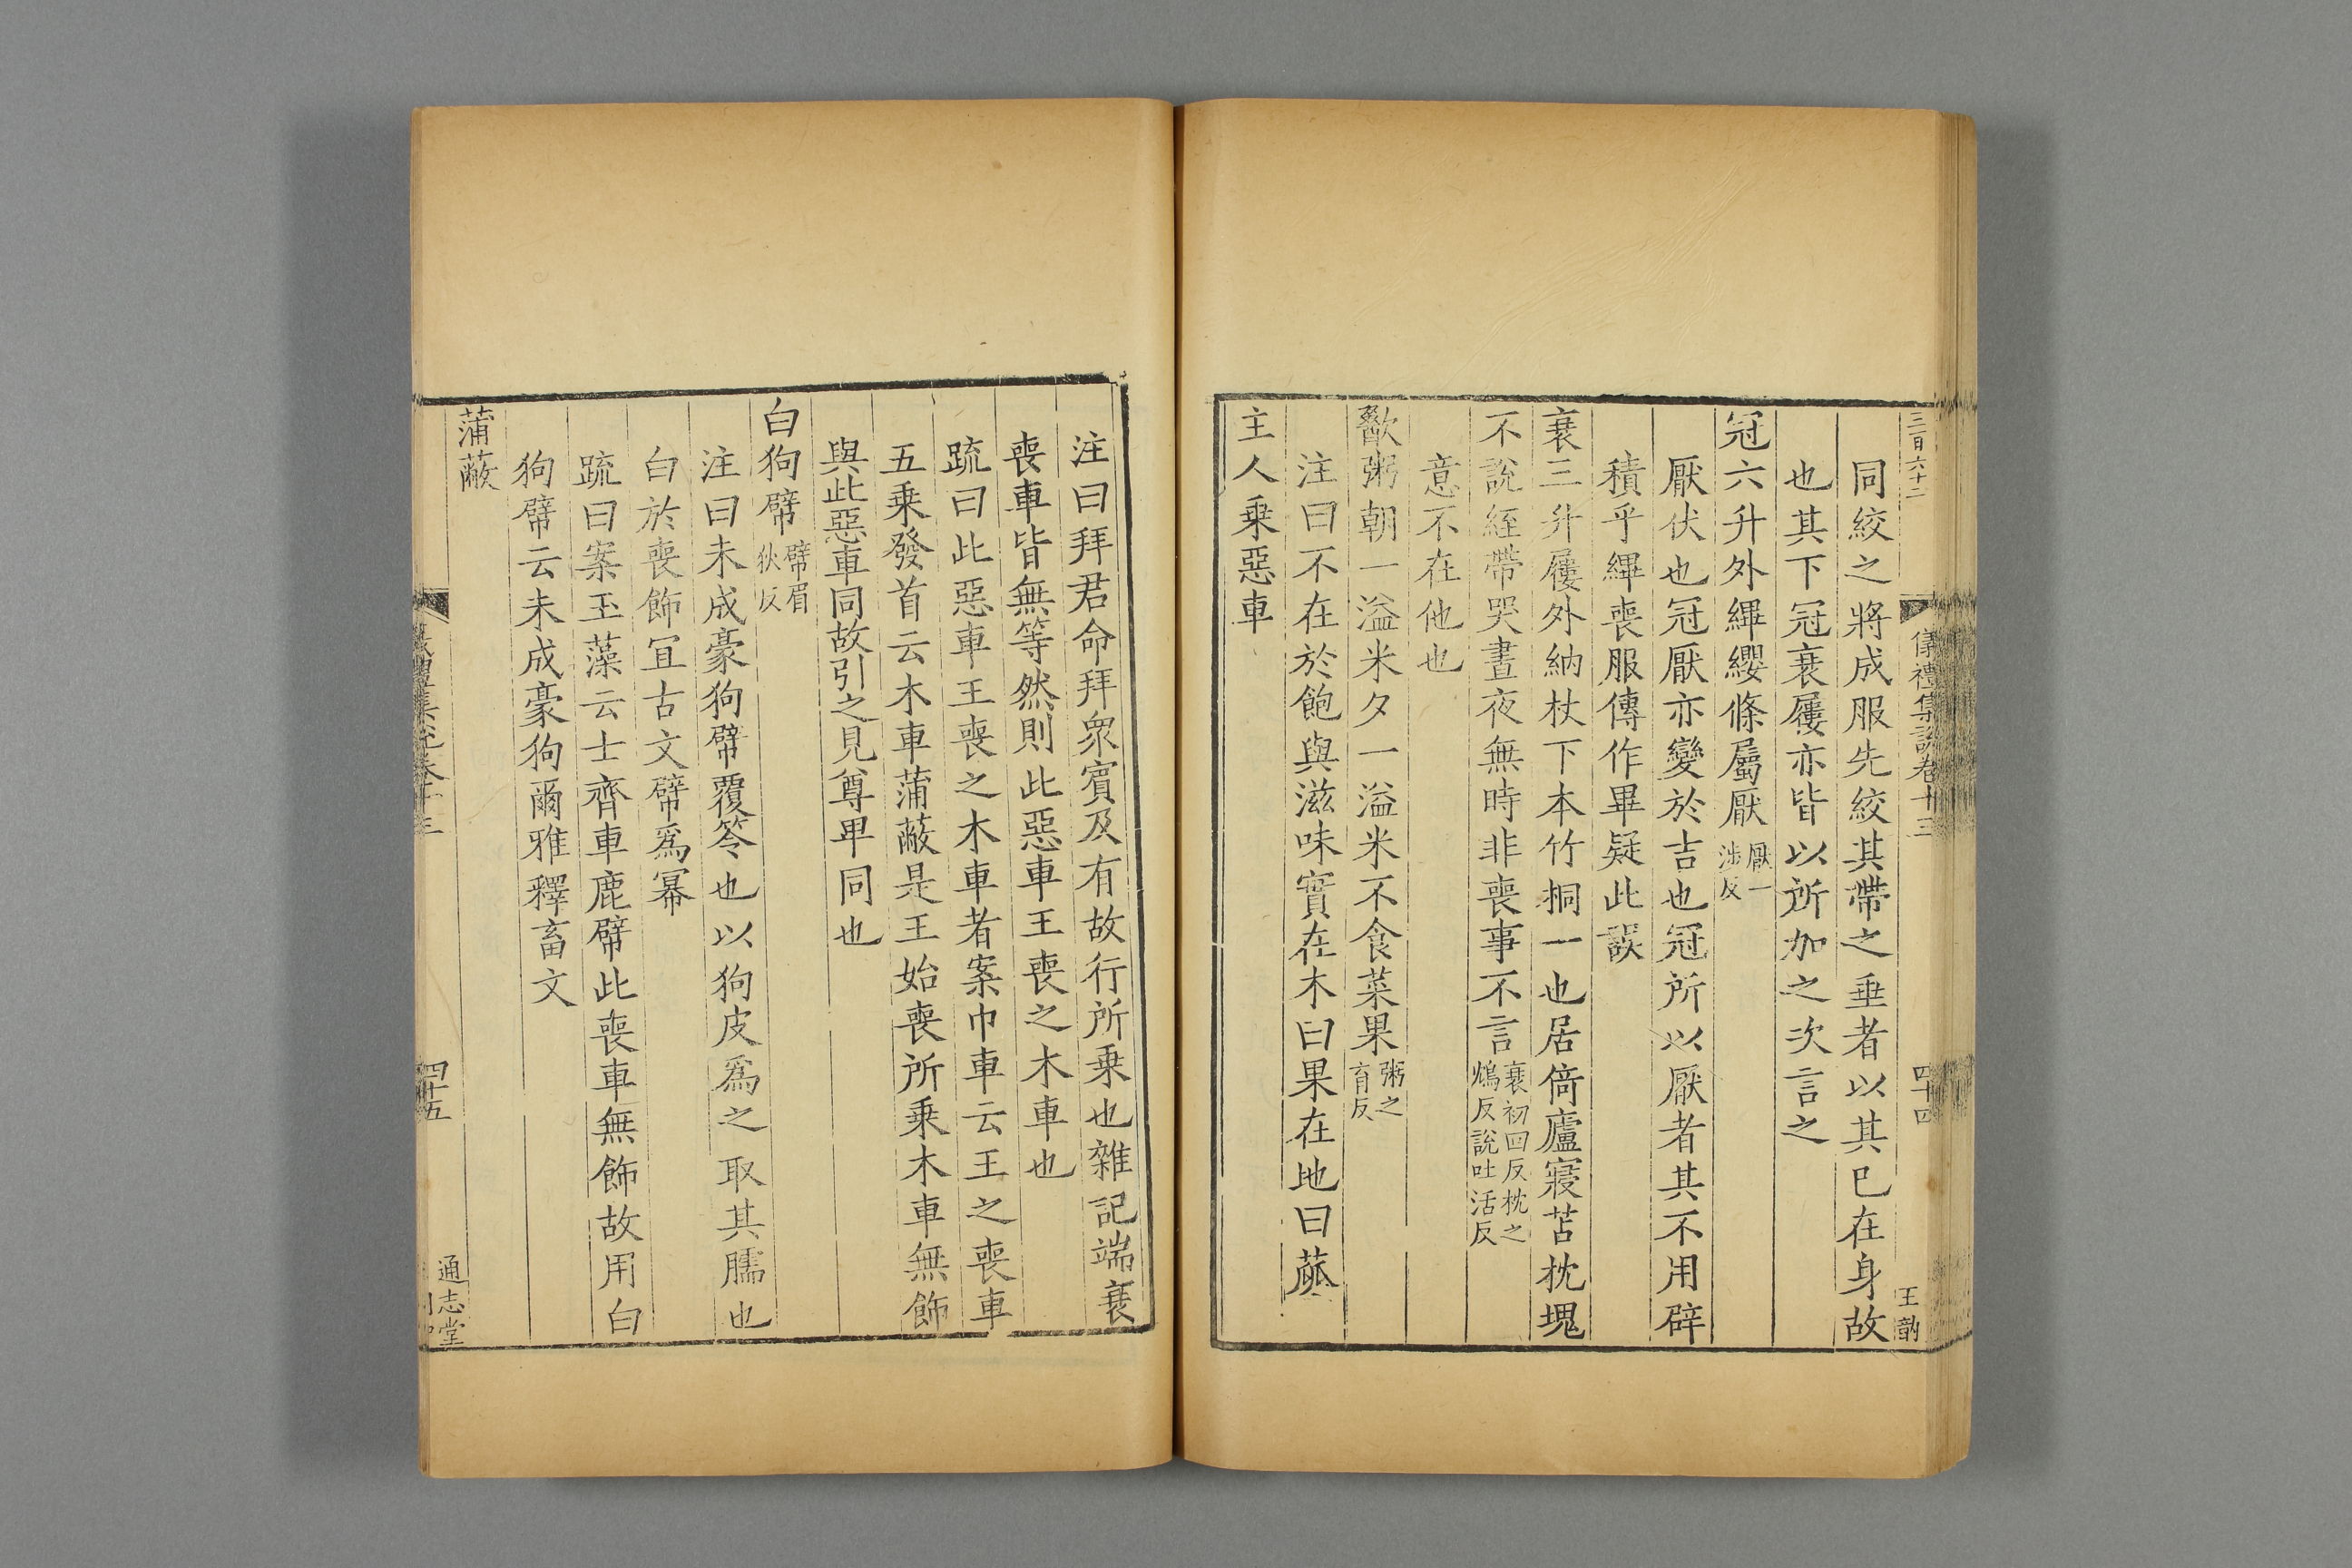 三百六十二
儀禮集說卷十三
四十四
王䚮
同絞之將成服先絞其帶之垂者以其已在身故
也其下冠衰屨亦皆以所加之次言之
冠六升外縪纓條屬厭厭一涉反
厭伏也冠厭亦變於吉也冠所以厭者其不用辟
積乎縪喪服傳作畢疑此誤
衰三升屨外納杖下本竹桐一也居倚廬寢苫枕塊
不說絰帶哭晝夜無時非喪事不言衰初回反枕之鴆反說吐活反
意不在他也
歠粥朝一溢米夕一溢米不食菜果粥之育反
注曰不在於飽與滋味實在木曰果在地曰蓏
主人乗惡車
注曰拜君命拜衆賓及有故行所乗也雜記端衰
喪車皆無等然則此惡車王喪之木車也
疏曰此惡車王喪之木車者案巾車云王之喪車
五乗發首云木車蒲蔽是王始喪所乗木車無飾
與此惡車同故引之見尊卑同也
白狗幦幦眉狄反
注曰未成豪狗幦覆笭也以狗皮爲之取其臑也
白於喪飾宜古文幦爲冪
疏曰案玉藻云士齊車鹿幦此喪車無飾故用白
狗幦云未成豪狗爾雅釋畜文
蒲蔽
四十五
通志堂